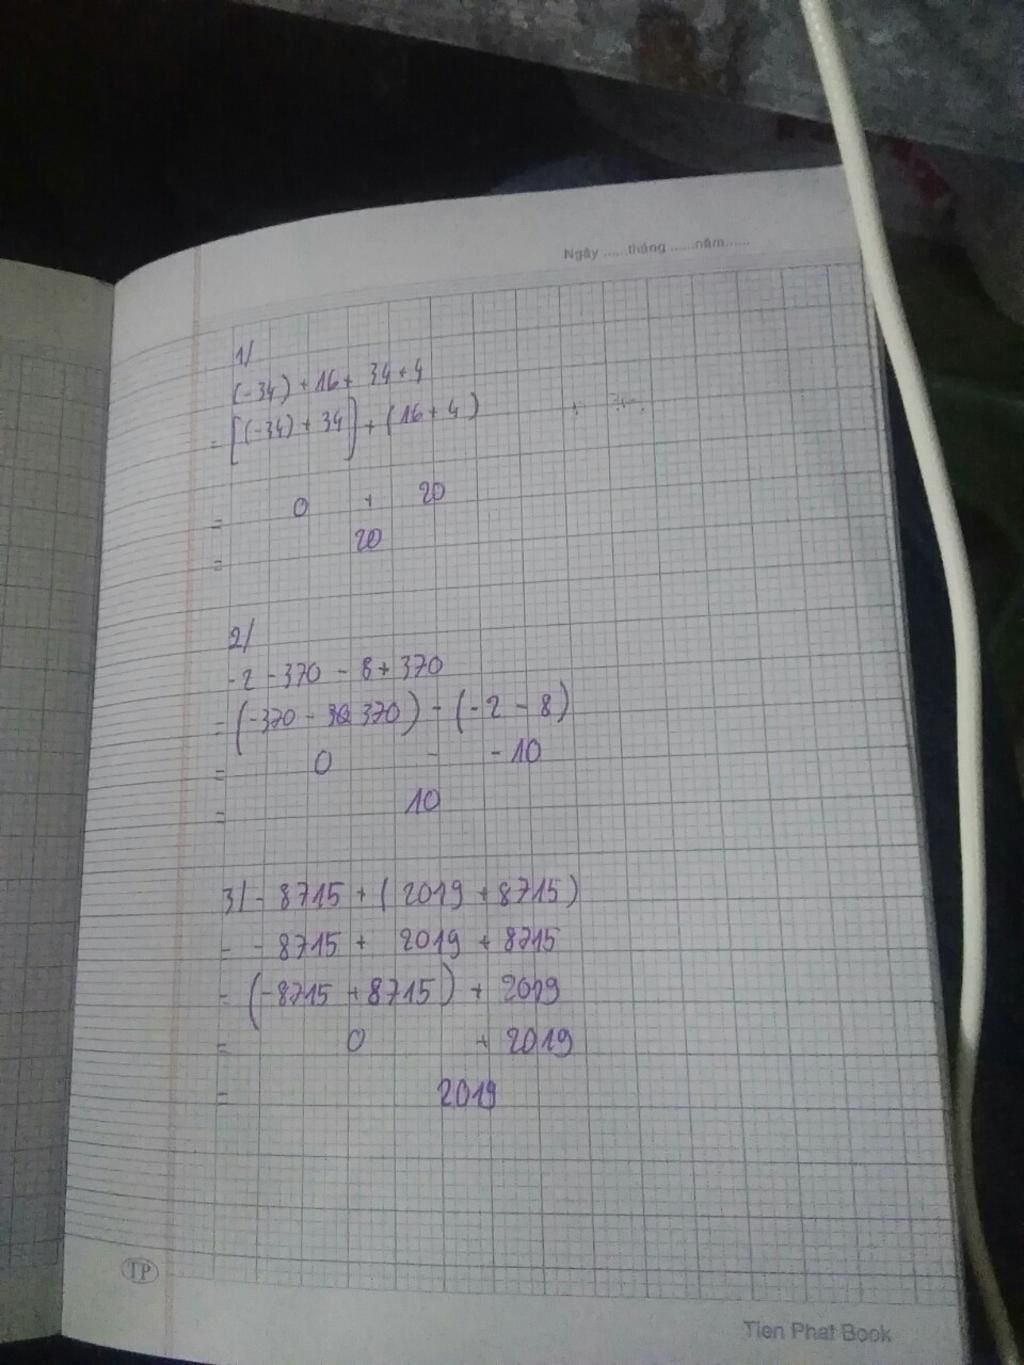 Ngày ......tháng ......năm......
1/
(-34) + 16 + 34 + 4
= [(-34) + 34] + (16 + 4)
= 0 + 20
= 20
2/
-2 - 370 - 8 + 370
= (-370 - 370) - (-2 - 8)
= 0 - -10
= 10
3/ - 8715 + (2019 + 8715)
= - 8715 + 2019 + 8715
= (-8715 + 8715) + 2019
= 0 + 2019
= 2019
TP
Tien Phat Book